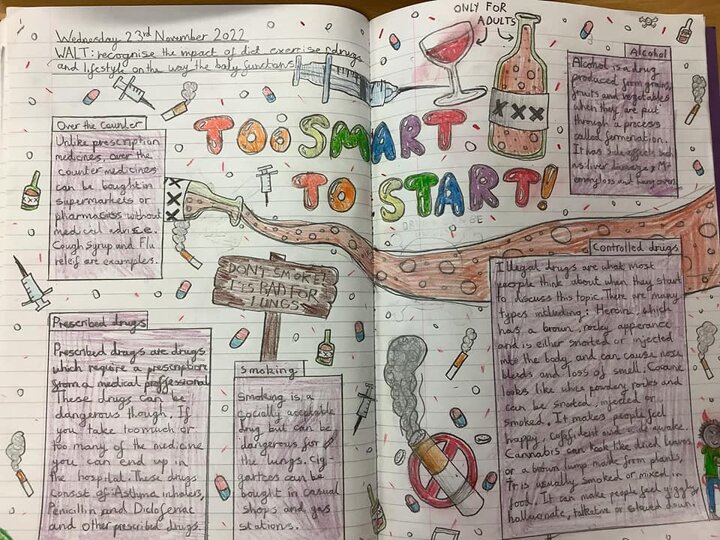 Wednesday 23rd November 2022
WALT: recognise the impact of diet exercise drugs
and lifestyle on the way the body functions
TOO SMART
TO START!
ONLY FOR
ADULTS
XXX
Over the Counter
Unlike prescription
medicines, over the
counter medicines
can be bought in
supermarkets or
pharmacies without
medical advice.
Cough syrup and Flu
relief are examples.
XXX
DON'T SMOKE!
IT'S BAD FOR
LUNGS
Prescribed drugs
Prescribed drugs are drugs
which require a prescription
from a medical proffesional.
These drugs can be
dangerous though. If
you take too much or
too many of the medicine
you can end up in
the hospital. These drugs
consist of Asthma inhalers,
Penicillin and Diclofenac
and other prescribed drugs.
Smoking
Smoking is a
socially acceptable
drug but can be
dangerous for
the lungs. Cig-
arettes can be
bought in casual
shops and gas
stations.
Alcohol
Alcohol is a drug
produced from grains,
fruits and vegetables
when they are put
through a process
called fermentation.
It has side effects such
as liver damage, M
emory loss and hang overs.
Controlled drugs
Illegal drugs are what most
people think about when they start
to discuss this topic. There are many
types including: Heroin which
has a brown, rocky apperance
and is either snorted or injected
into the body and can cause nose
bleeds and loss of smell. Cocaine
looks like white powdery rocks and
can be snorted, injected or
smoked. It makes people feel
happy, confident and awake.
Cannabis can look like dried leaves
or a brown lump made from plants,
It is usually smoked or mixed in
food. It can make people feel giggly,
hallucinate, talkative or slowed down.